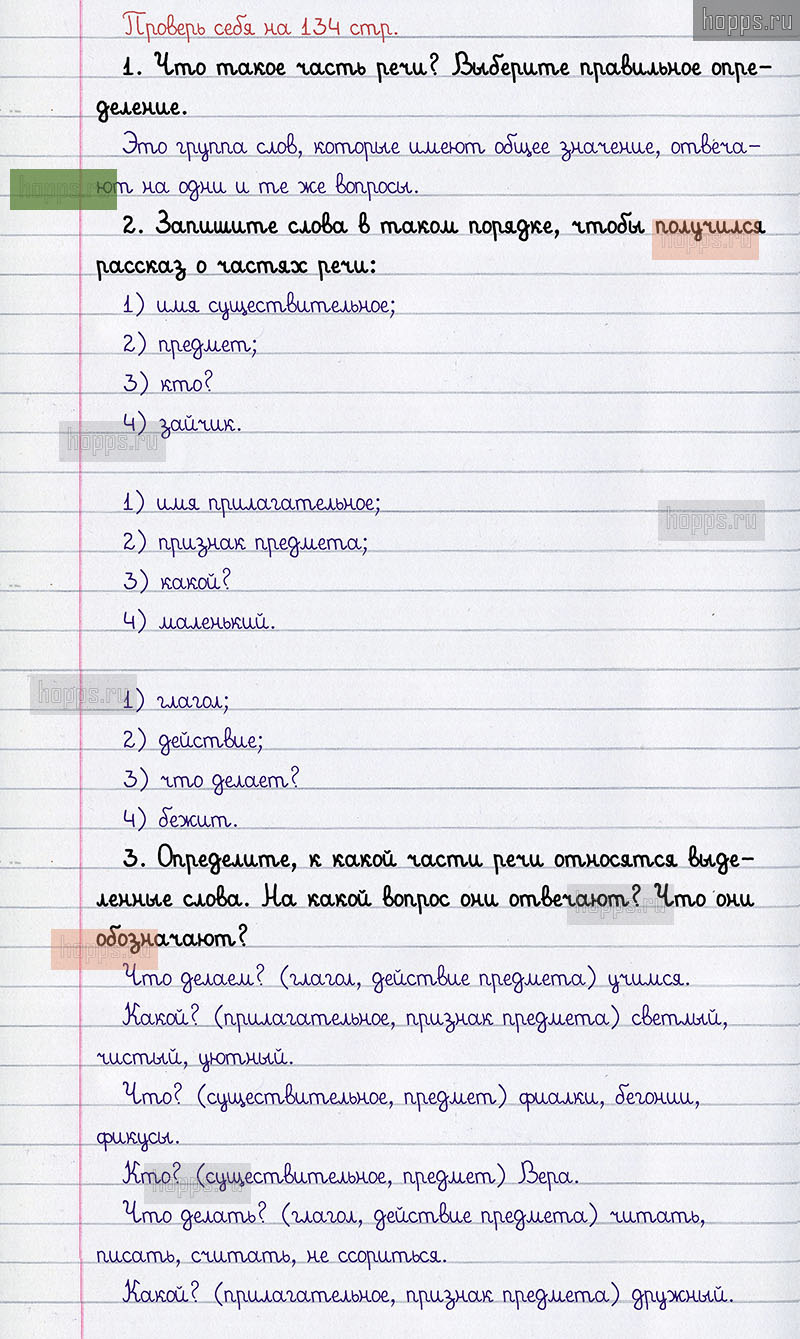 hopps.ru
Проверь себя на 134 стр.
1. Что такое часть речи? Выберите правильное опре-
деление.
Это группа слов, которые имеют общее значение, отвеча-
ют на одни и те же вопросы.
hopps.ru
2. Запишите слова в таком порядке, чтобы получился
hopps.ru
рассказ о частях речи:
1) имя существительное;
2) предмет;
3) кто?
4) зайчик.
hopps.ru
1) имя прилагательное;
hopps.ru
2) признак предмета;
3) какой?
4) маленький.
hopps.ru
1) глагол;
2) действие;
3) что делает?
4) бежит.
3. Определите, к какой части речи относятся выде-
ленные слова. На какой вопрос они отвечают? Что они
hopps.ru
обозначают?
hopps.ru
Что делаем? (глагол, действие предмета) учимся.
Какой? (прилагательное, признак предмета) светлый,
чистый, уютный.
Что? (существительное, предмет) фиалки, бегонии,
фикусы.
Кто? (существительное, предмет) Вера.
hopps.ru
Что делать? (глагол, действие предмета) читать,
писать, считать, не ссориться.
Какой? (прилагательное, признак предмета) дружный.